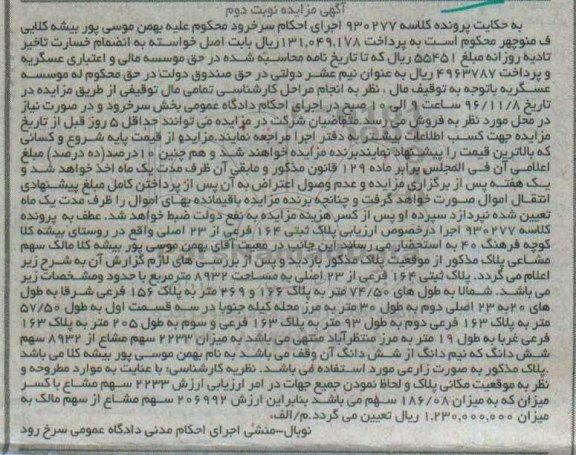 آگهی مزایده نوبت دوم
به حکایت پرونده کلاسه ۹۳۰۲۷۷ اجرای احکام سرخرود محکوم علیه بهمن موسی پور بیشه کلایی
ف منوچهر محکوم است به پرداخت ۱۳۱,۰۴۹,۱۷۸ریال بابت اصل خواسته به انضمام خسارت تاخیر
تادیه روزانه مبلغ ۵۵۴۵۱ ریال که تا تاریخ نامه محاسبه شده در حق موسسه مالی و اعتباری عسگریه
و پرداخت ۴۹۶۳۷۸۷ ریال به عنوان نیم عشر دولتی در حق صندوق دولت در حق محکوم له موسسه
عسگریه باتوجه به توقیف مال ، نظر به انجام مراحل کارشناسی تمامی مال توقیفی از طریق مزایده در
تاریخ ۹۶/۱۱/۸ ساعت ۹ الی ۱۰ صبح در اجرای احکام دادگاه عمومی بخش سرخرود و در صورت نیاز
در محل مورد نظر به فروش می رسد.متقاضیان شرکت در مزایده می توانند حداقل ۵ روز قبل از تاریخ
مزایده جهت کسب اطلاعات بیشتر به دفتر اجرا مراجعه نمایند.مزایده از قیمت پایه شروع و کسانی
که بالاترین قیمت را پیشنهاد نمایندبرنده مزایده خواهند شد و هم چنین ۱۰درصد(ده درصد) مبلغ
اعلامی آن فی المجلس برابر ماده ۱۲۹ قانون مذکور و مابقی آن ظرف مدت یک ماه اخذ خواهد شد و
یک هفته پس از برگزاری مزایده و عدم وصول اعتراض به آن پس از پرداختن کامل مبلغ پیشنهادی
انتقال اموال صورت خواهد گرفت و چنانچه برنده مزایده باقیمانده بهای اموال را ظرف مدت یک ماه
تعیین شده نپردازد سپرده او پس از کسر هزینه مزایده به نفع دولت ضبط خواهد شد. عطف به پرونده
کلاسه ۹۳۰۲۷۷ اجرا درخصوص ارزیابی پلاک ثبتی ۱۶۴ فرعی از ۲۳ اصلی واقع در روستای بیشه کلا
کوچه فرهنگ ۴۰ به استحضار می رساند این جانب در معیت آقای بهمن موسی پور بیشه کلا مالک سهم
مشاعی پلاک مذکور از موقعیت پلاک مذکور بازدید و پس از بررسی های لازم گزارش آن به شرح زیر
اعلام می گردد. پلاک ثبتی ۱۶۴ فرعی از ۲۳ اصلی به مساحت ۸۹۳۲ مترمربع با حدود ومشخصات زیر
می باشد. شمالا به طول های ۷۴/۵۰ متر به پلاک ۱۶۶ و ۲۶۹ متر به پلاک ۱۵۶ فرعی شرقا به طول
های ۲۰به ۲۳ اصلی دوم به طول ۳۰ متر به مرز محله کیله جنوبا در سه قسمت اول به طول ۵۷/۵۰
متر به پلاک ۱۶۳ فرعی دوم به طول ۹۳ متر به پلاک ۱۶۳ فرعی و سوم به طول ۲۰۵ متر به پلاک ۱۶۳
فرعی غربا به طول ۱۹ متر به مرز منتظرآباد منتهی می باشد به میزان ۲۲۳۳ سهم مشاع از ۸۹۳۲ سهم
شش دانگ که نیم دانگ از شش دانگ آن وقف می باشد به نام بهمن موسی پور بیشه کلا می باشد
.پلاک مذکور به صورت زارعی مورد استفاده می باشد. نظریه کارشناسی: با عنایت به موارد مطروحه و
نظر به موقعیت مکانی پلاک و لحاظ نمودن جمیع جهات در امر ارزیابی ارزش ۲۲۳۳ سهم مشاع با کسر
میزان که به میزان ۱۸۶/۰۸ سهم می باشد بنابراین ارزش ۲۰۶۹۹۲ سهم مشاع از سهم مالک به
میزان ۱,۲۳۰,۰۰۰,۰۰۰ ریال تعیین می گردد.م/الف.
نوبال-منشی اجرای احکام مدنی دادگاه عمومی سرخ رود